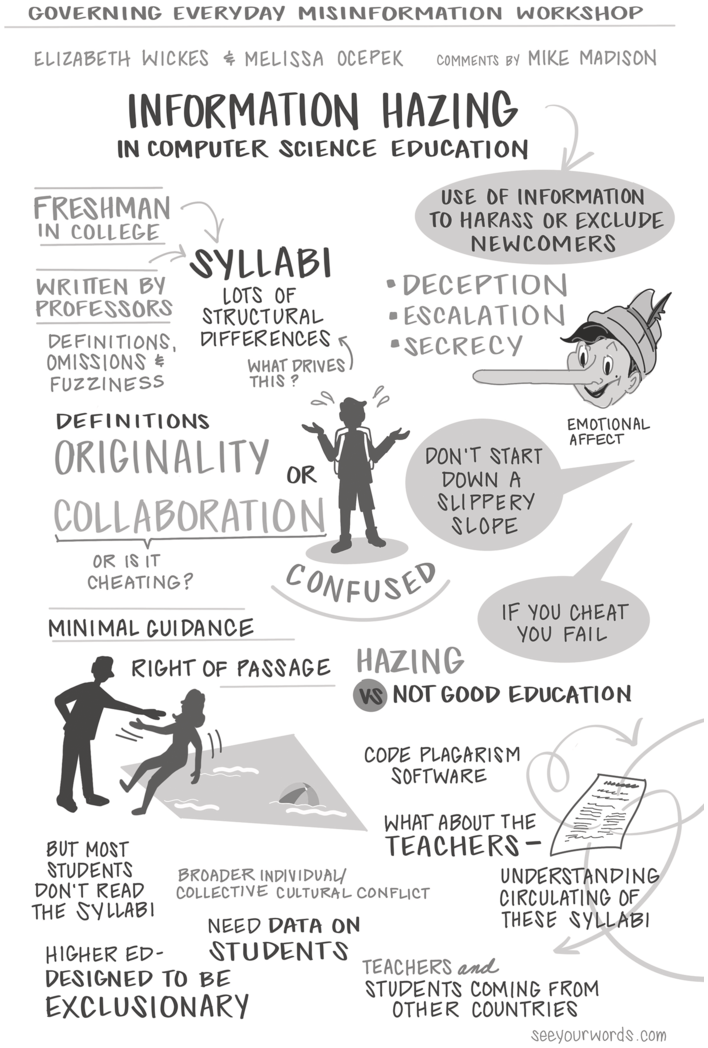 GOVERNING EVERYDAY MISINFORMATION WORKSHOP
ELIZABETH WICKES & MELISSA OCEPEK COMMENTS BY MIKE MADISON
INFORMATION HAZING
IN COMPUTER SCIENCE EDUCATION
USE OF INFORMATION
TO HARASS OR EXCLUDE
NEWCOMERS
FRESHMAN
IN COLLEGE
WRITTEN BY
PROFESSORS
DEFINITIONS,
OMISSIONS &
FUZZINESS
SYLLABI
LOTS OF
STRUCTURAL
DIFFERENCES
WHAT DRIVES
THIS?
• DECEPTION
• ESCALATION
• SECRECY
EMOTIONAL
AFFECT
DEFINITIONS
ORIGINALITY
OR
COLLABORATION
OR IS IT
CHEATING?
CONFUSED
DON'T START
DOWN A
SLIPPERY
SLOPE
IF YOU CHEAT
YOU FAIL
MINIMAL GUIDANCE
RIGHT OF PASSAGE
HAZING
VS NOT GOOD EDUCATION
CODE PLAGARISM
SOFTWARE
WHAT ABOUT THE
TEACHERS -
UNDERSTANDING
CIRCULATING OF
THESE SYLLABI
BUT MOST
STUDENTS
DON'T READ
THE SYLLABI
BROADER INDIVIDUAL/
COLLECTIVE CULTURAL CONFLICT
NEED DATA ON
STUDENTS
HIGHER ED-
DESIGNED TO BE
EXCLUSIONARY
TEACHERS and
STUDENTS COMING FROM
OTHER COUNTRIES
seeyourwords.com